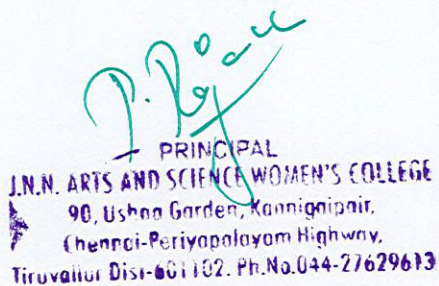 PRINCIPAL
J.N.N. ARTS AND SCIENCE WOMEN'S COLLEGE
90, Ushaa Garden, Kannigaipair,
Chennai-Periyapalayam Highway,
Tiruvallur Dist-601102. Ph.No.044-27629613